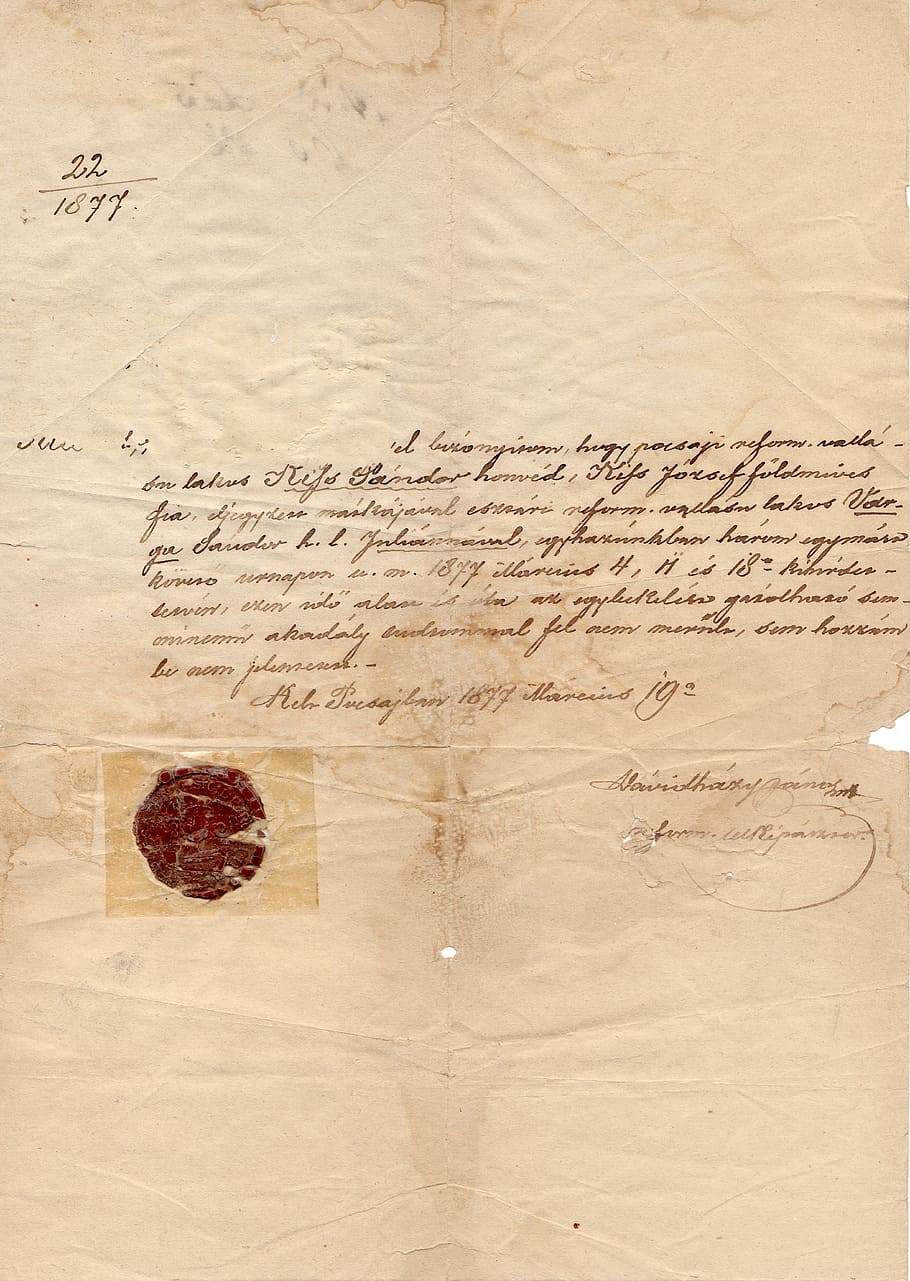 22
1877.
el bizonyitom, hogy pocsaji reform. vallá-
su lakos Kiss Sándor honvéd, Kiss József földmives
fia, eljegyzett mátkájával eszári reform. vallásu lakos Var-
ga Sándor h. l. Juliánnával, egyházunkban három egymást
követő urnapon u. m. 1877 Március 4, 11 és 18án kihirdet-
tetvén, ezen idő alatt és óta az egybekelést gátolható sem-
minemű akadály tudtommal fel nem merült, sem hozzám
be nem jelentetett. -
Kelt Pocsajban 1877 Március 19én
Dávidházy János
reform. lelkipásztor.